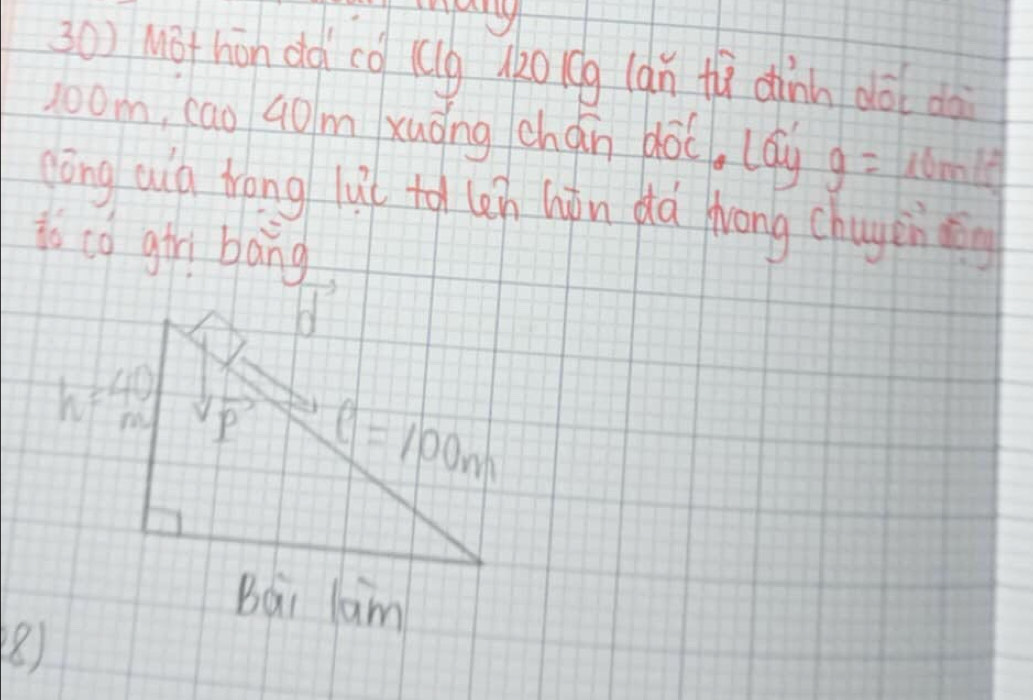 30) Một hòn đá có Klg 120 Kg lăn từ đỉnh dốc dài
100m, cao 40m xuống chân dốc. Lấy g = 10m/s²
công của trọng lực td lên hòn đá trong chuyển động
đó có gtrị bằng
d
h = 40 m
P
l = 100m
Bài làm
28)